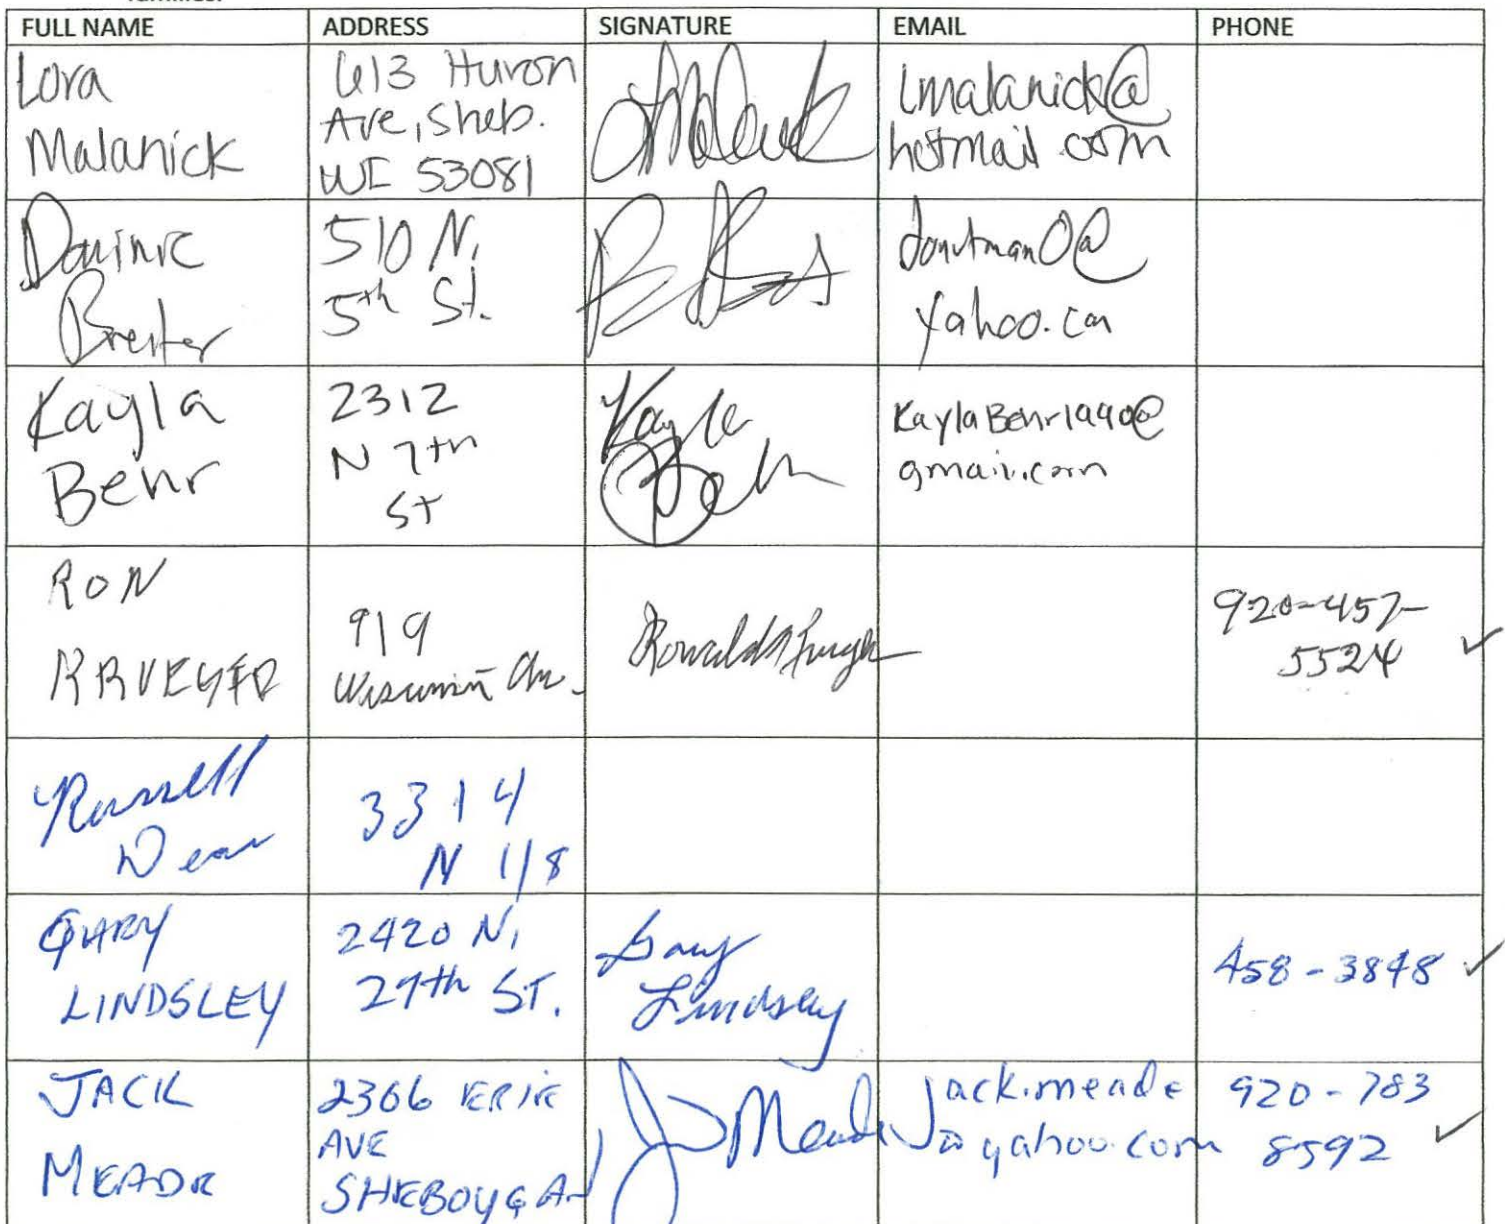 FULL NAME ADDRESS SIGNATURE EMAIL PHONE
Lora
Malanick
613 Huron
Ave, Sheb.
WI 53081
lmalanick@
hotmail.com
Dominic
Breiter
510 N.
5th St.
donutman0@
yahoo.com
Kayla
Behr
2312
N 7th
St
Kayla
Behr
KaylaBehr1990@
gmail.com
RON
919
Wisconsin Av.
920-457-
5524
Russell
3314
N
GARY
LINDSLEY
2420 N.
ST.
Gary
Lindsley
458-3848
JACK
MEADE
2306 ERIE
AVE
SHEBOYGAN
J Meade
jack.meade
@yahoo.com
920-783
8592